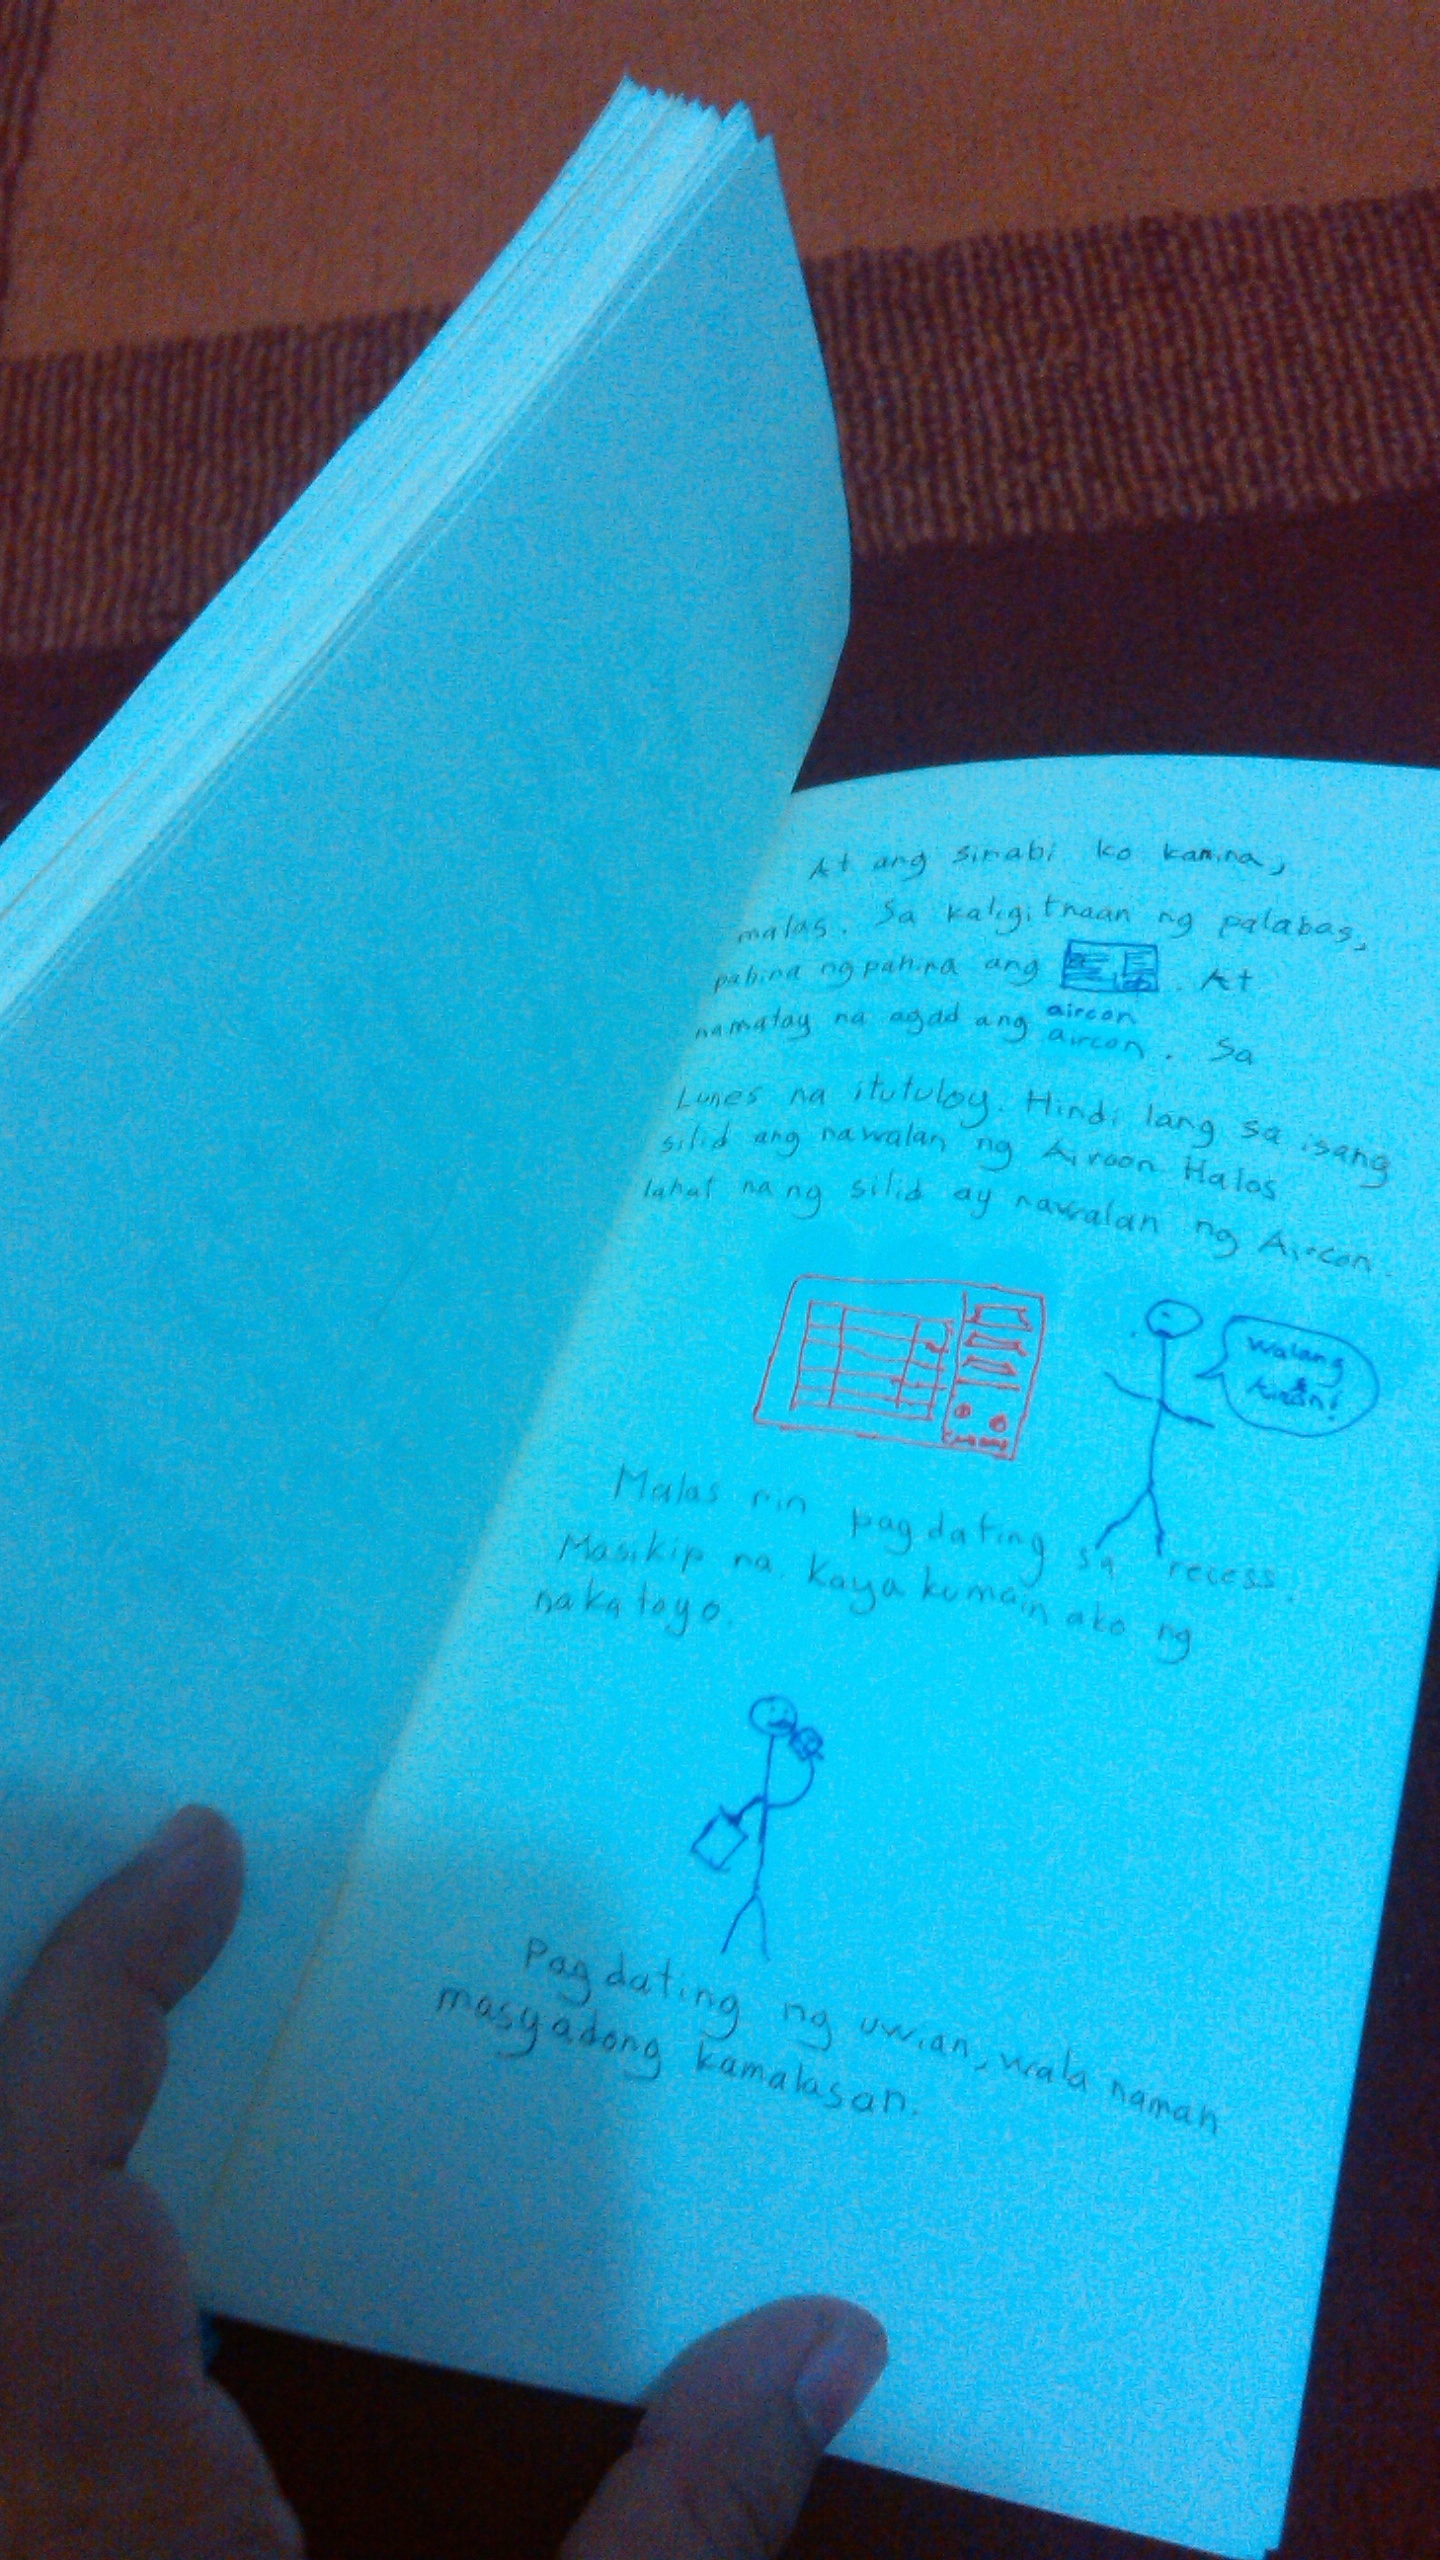 At ang sinabi ko kanina,
malas. Sa kaligitnaan ng palabas,
pahina ng pahina ang . At
aircon
namatay na agad ang aircon. Sa
Lunes na itutuloy. Hindi lang sa isang
silid ang nawalan ng Aircon Halos
lahat na ng silid ay nawalan ng Aircon.
Walang
Malas rin pagdating sa recess.
Masikip na. Kaya kumain ako ng
nakatayo.
Pagdating ng uwian, wala naman
masyadong kamalasan.